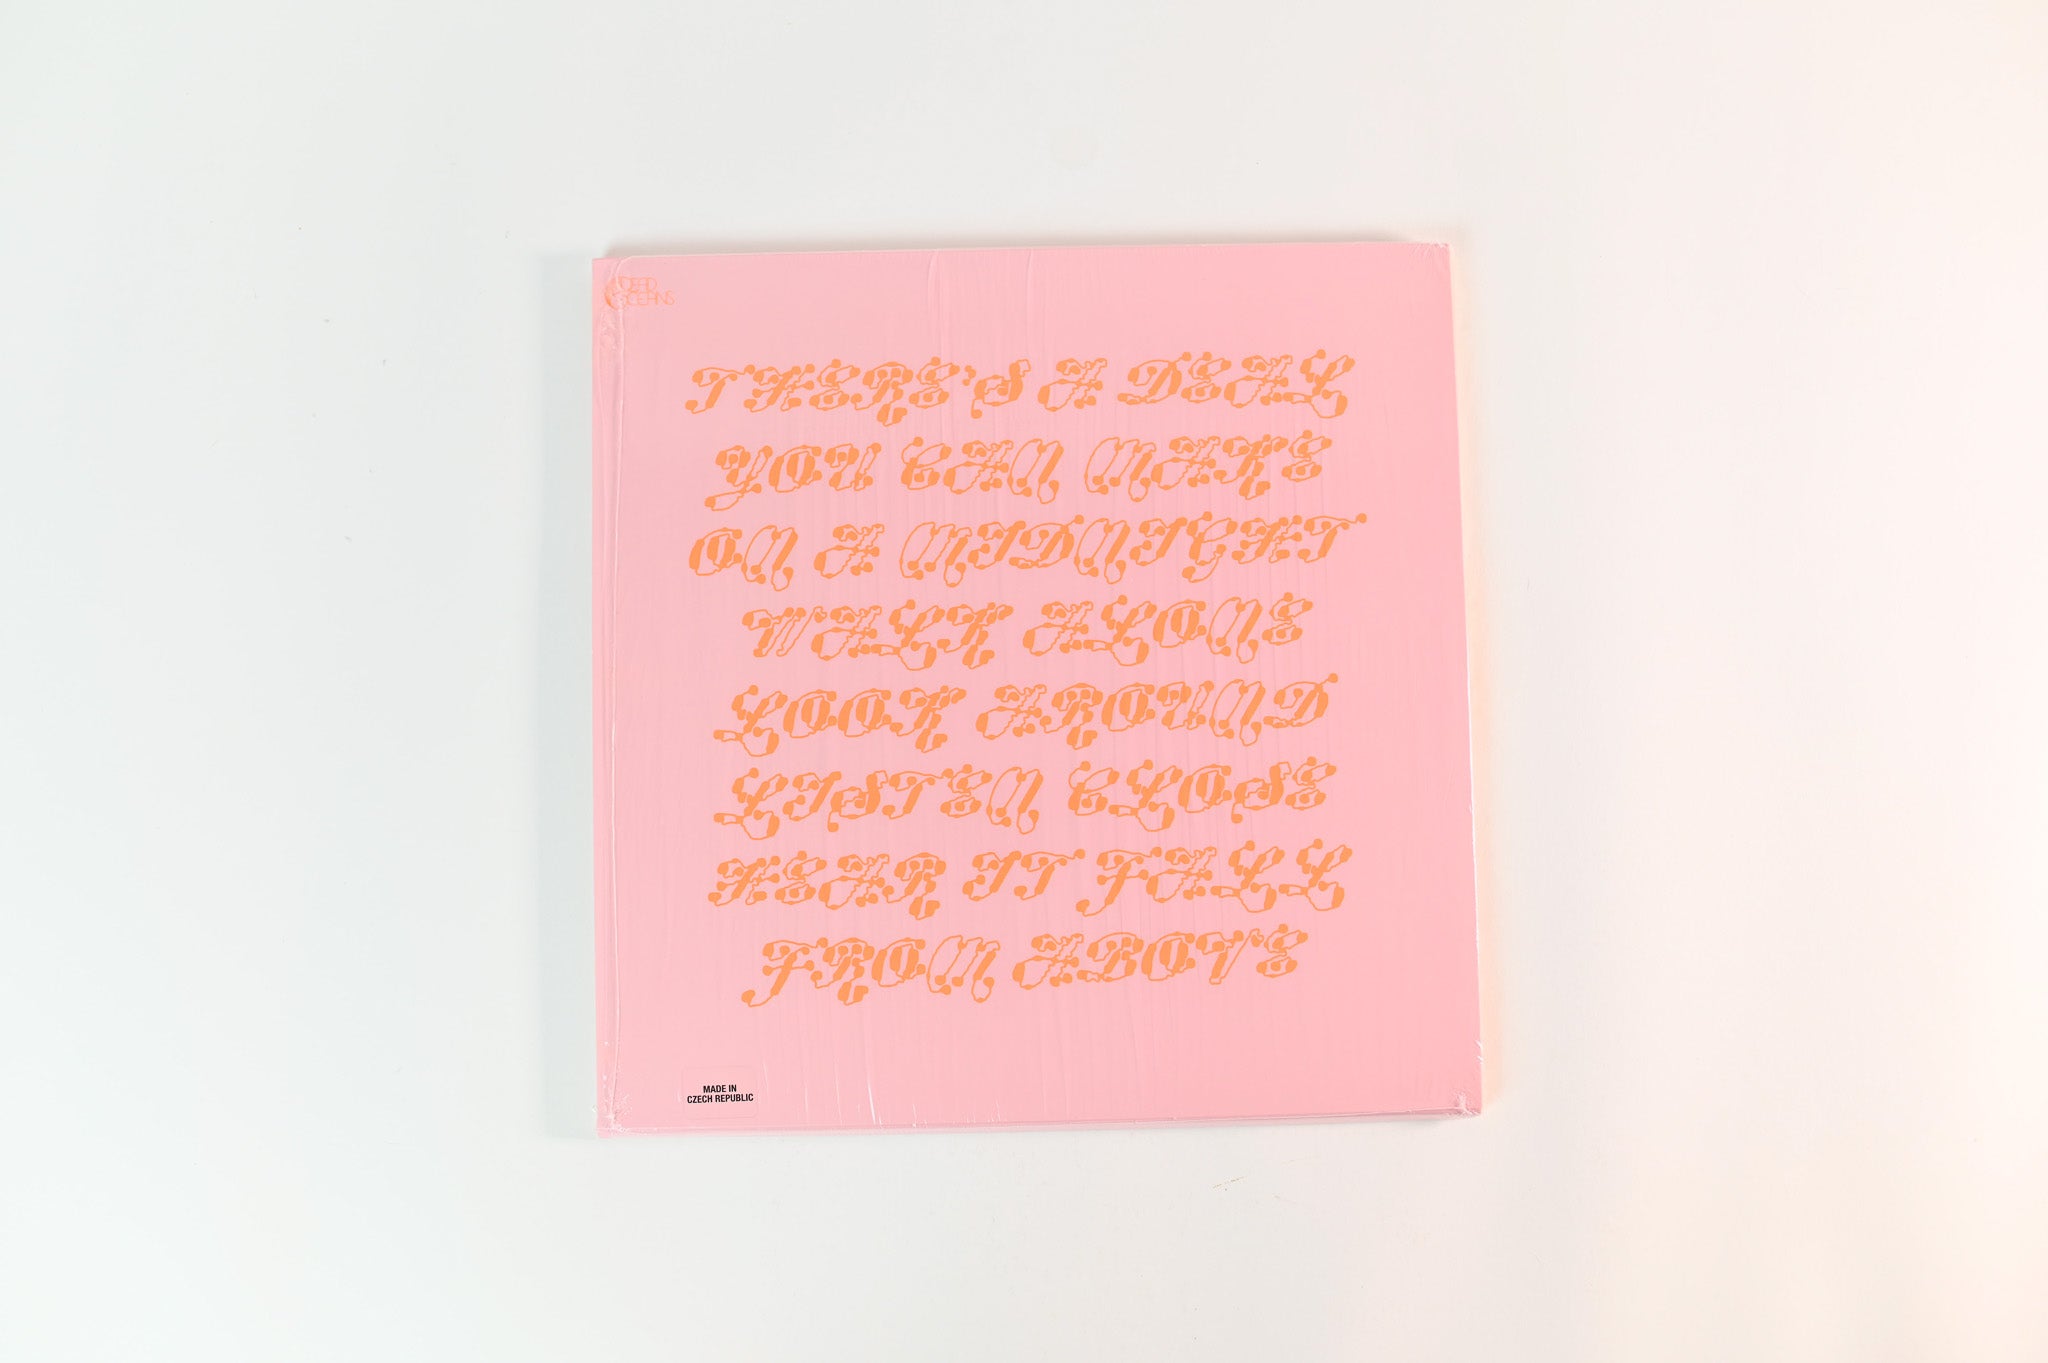 DEAD
OCEANS
THERE'S A DEAL
YOU CAN MAKE
ON A MIDNIGHT
WALK ALONE
LOOK AROUND
LISTEN CLOSE
HEAR IT FALL
FROM ABOVE
MADE IN
CZECH REPUBLIC